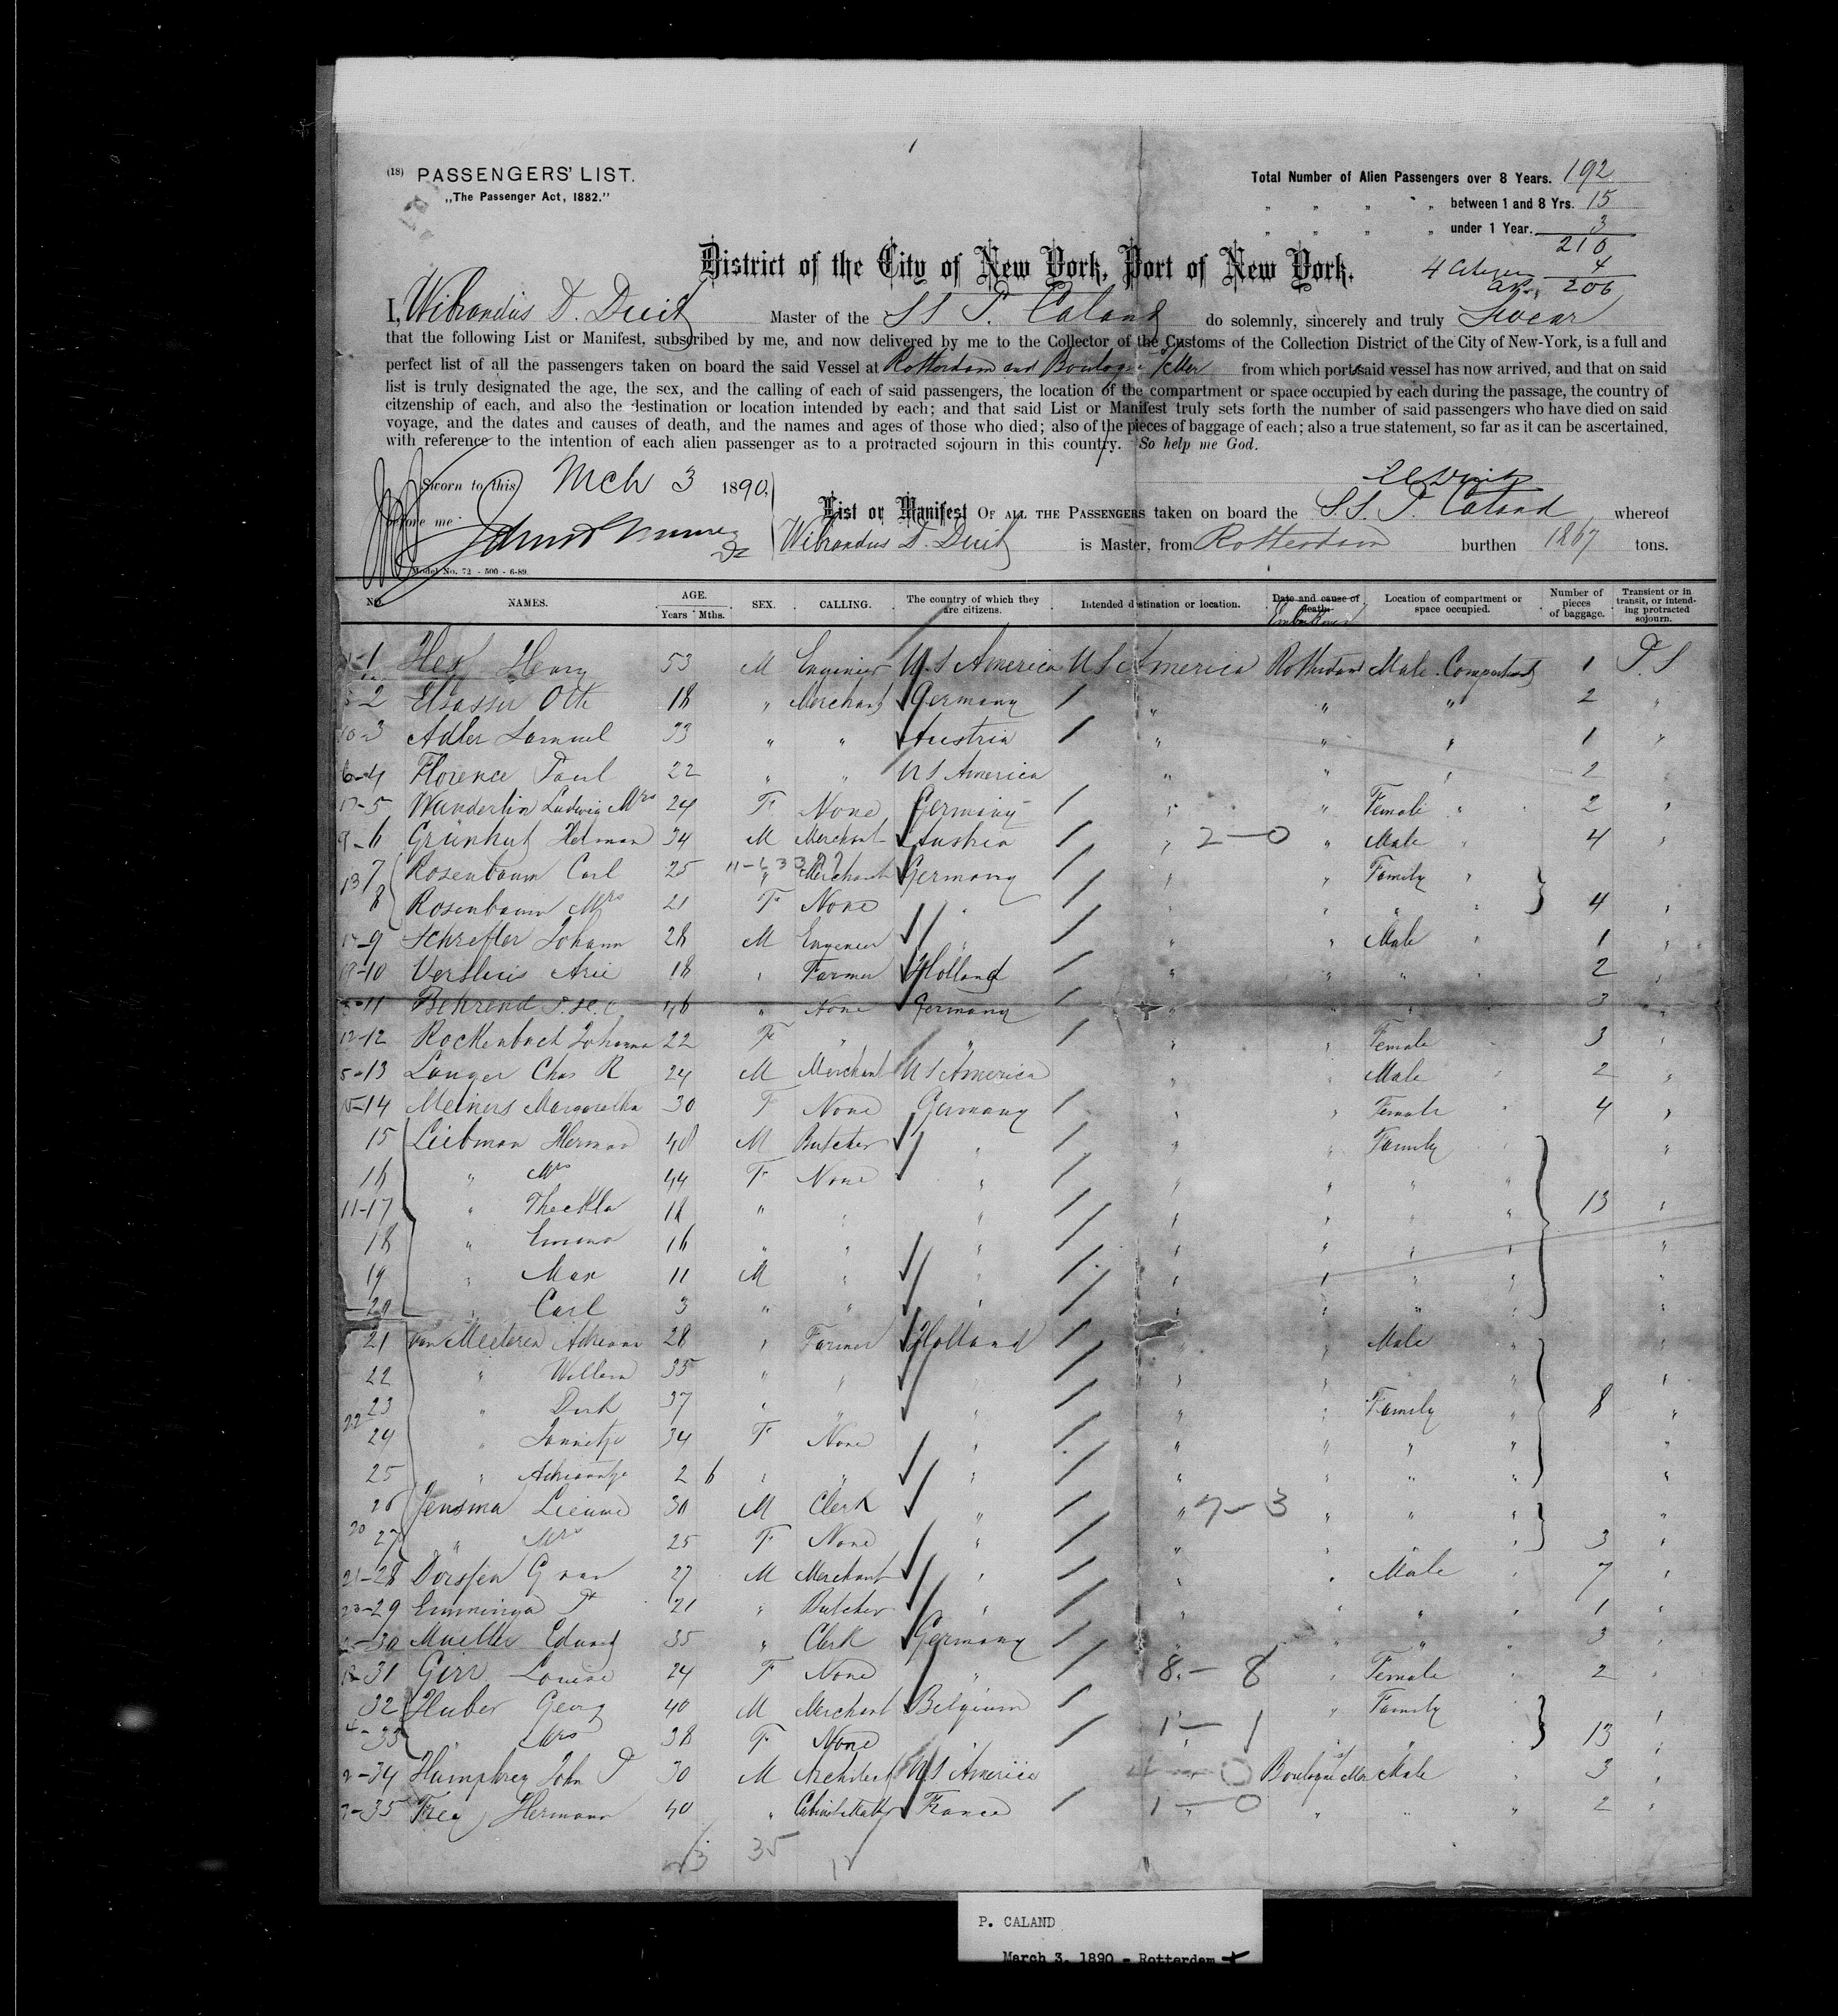 (18) PASSENGERS' LIST.
„The Passenger Act, 1882."
Total Number of Alien Passengers over 8 Years. 192
" " " " between 1 and 8 Yrs. 15
" " " " under 1 Year. 3
210
4 Citizens 4
206
District of the City of New York, Port of New York.
I, Wibrandus D. Duit Master of the SS P. Caland do solemnly, sincerely and truly Swear
that the following List or Manifest, subscribed by me, and now delivered by me to the Collector of the Customs of the Collection District of the City of New-York, is a full and
perfect list of all the passengers taken on board the said Vessel at Rotterdam and Boulogne s/Mer from which port said vessel has now arrived, and that on said
list is truly designated the age, the sex, and the calling of each of said passengers, the location of the compartment or space occupied by each during the passage, the country of
citzenship of each, and also the destination or location intended by each; and that said List or Manifest truly sets forth the number of said passengers who have died on said
voyage, and the dates and causes of death, and the names and ages of those who died; also of the pieces of baggage of each; also a true statement, so far as it can be ascertained,
with reference to the intention of each alien passenger as to a protracted sojourn in this country. So help me God.
Sworn to this Mch 3 1890,
before me
List or Manifest OF ALL THE PASSENGERS taken on board the S.S. P. Caland whereof
Wibrandus D. Duit is Master, from Rotterdam burthen 1867 tons.
Model No. 72 - 500 - 6-89.
NO. NAMES. AGE. Years Mths. SEX. CALLING. The country of which they are citizens. Intended destination or location. Date and cause of death. Embarked Location of compartment or space occupied. Number of pieces of baggage. Transient or in transit, or intending protracted sojourn.
1 Hex Henry 53 M Engineer U.S America U S America Rotterdam Male Compartment 1 P.S
2 Elsasser Otto 18 " Merchant Germany " " " 2 "
10-3 Adler Samuel 33 " " Austria " " " 1 "
6-4 Florence Paul 22 " " U S America " " " 2
17-5 Wanderlin Ludwig Mrs 24 F None Germany " " Female " 2 "
9-6 Grünhut Herman 34 M Merchant Austria " 2-0 " Male " 4 "
7 Rosenbaum Carl 25 " Merchant Germany " " Family "
13
8 Rosenbaum Mrs 21 F None " " " " " 4 "
9 Schrefler Johann 28 M Engeneer " " " Male " 1 "
19-10 Versluis Arie 18 " Farmer Holland " " " " 2 "
11 Behrend 46 " None Germany " " " 3 "
12-12 Rockenbach Johanna 22 F " " " " Female " 3 "
5-13 Langer Chas R 24 M Merchant U S America " " Male " 2 "
15-14 Meiners Margaretha 30 F None Germany " " Female " 4 "
15 Liebman Herman 48 M Butcher " " " Family "
16 " Mrs 44 F None " " " " " "
11-17 " Theckla 18 " " " " " " " 13 "
18 " Emma 16 " " " " " " " "
19 " Max 11 M " " " " " " "
20 " Carl 3 " " " " " " "
21 van Meeteren Adriana 28 " Farmer Holland " " Male " "
22 " Willem 35 " " " " " " "
23 " Dirk 37 " " " " " Family " 8 "
22
24 " Jannetje 34 F None " " " " " "
25 " Adriaantje 2 6 " " " " " " "
26 Jensma Lieuwe 30 M Clerk " " 7-3 " " " "
20
27 " Mrs 25 F None " " " " 3 "
21-28 Dorssen G van 27 M Merchant " " " Male " 7 "
23-29 Emminga P 21 " Butcher " " " " " 1 "
30 Mueller Eduard 35 " Clerk Germany " " " " 3 "
18-31 Girr Louise 24 F None " 8-8 " Female " 2 "
32 Huber Georg 40 M Merchant Belgium " Family "
4-33 " Mrs 38 F None 1-1 " " 13 "
2-34 Humphrey John P 30 M Architect U S America " Boulogne s/Mer Male " 3 "
7-35 Frey Hermann 40 " Cabinet Maker France 1-0 " " " 2 "
35
P. CALAND
March 3, 1890 - Rotterdam +